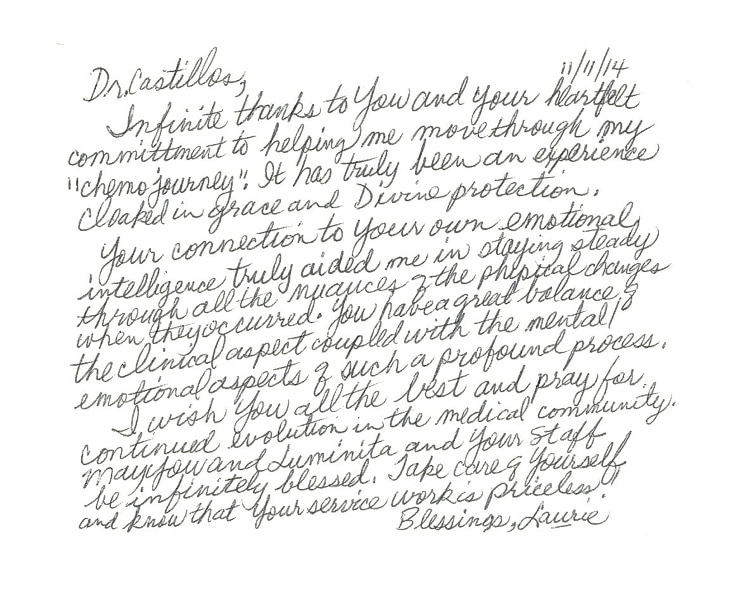 11/11/14
Dr. Castillos,
Infinite thanks to You and your heartfelt
committment to helping me move through my
"chemo journey". It has truly been an experience
cloaked in grace and Divine protection.
Your connection to your own emotional
intelligence truly aided me in staying steady
through all the nuances of the physical changes
when they occurred. You have a great balance of
the clinical aspect coupled with the mental/
emotional aspects of such a profound process.
I wish You all the best and pray for
continued evolution in the medical community.
May You and Luminita and Your Staff
be infinitely blessed. Take care of Yourself
and know that Your service work is priceless!
Blessings, Laurie